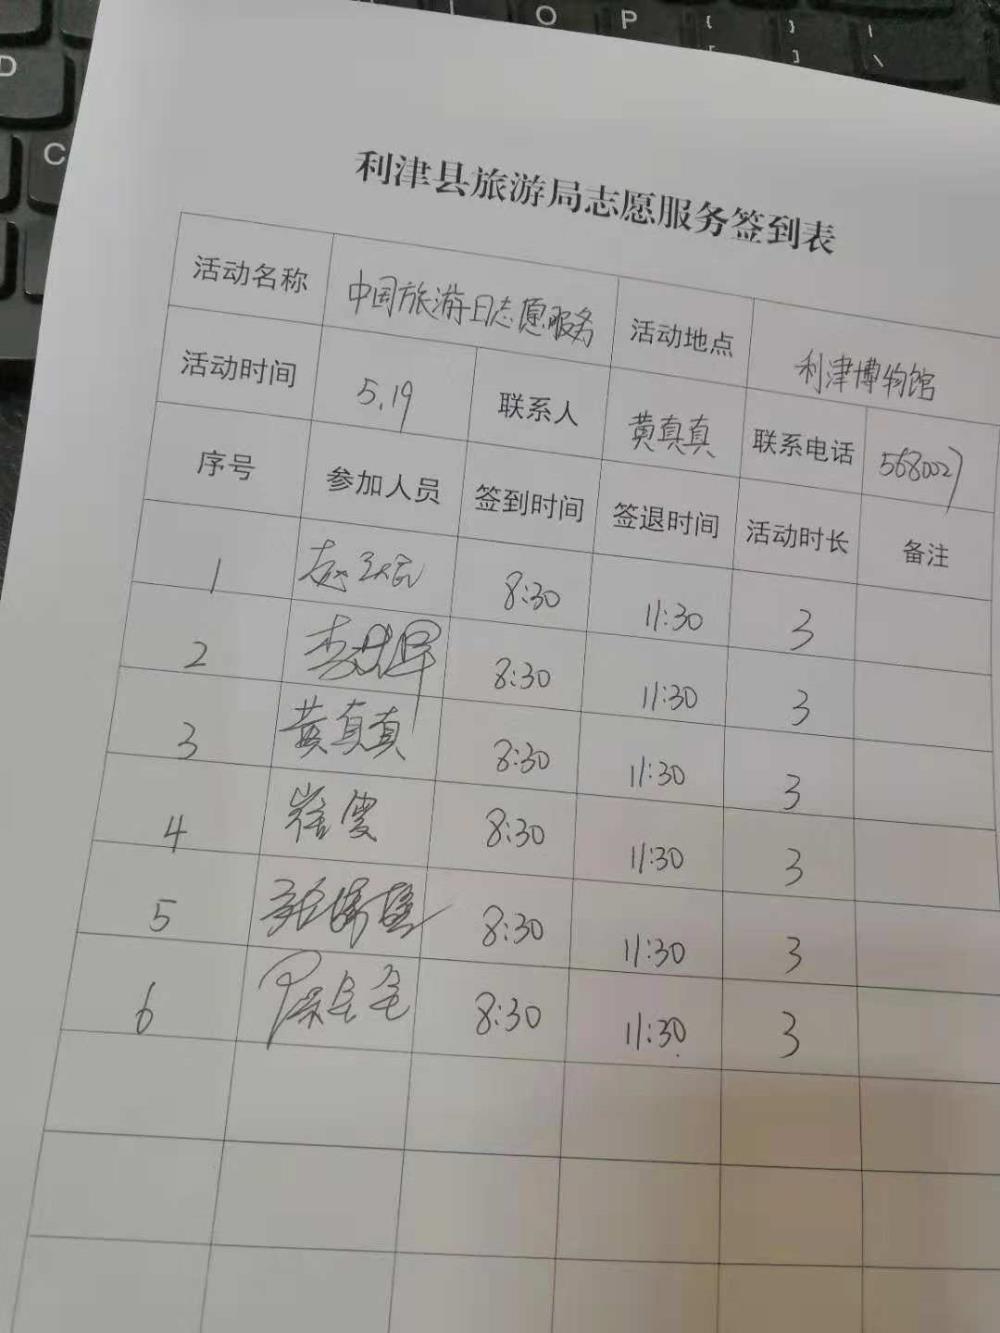 O P { } |
[ ] \
D
C
利津县旅游局志愿服务签到表
活动名称 中国旅游日志愿服务 活动地点 利津博物馆
活动时间 5.19 联系人 黄真真 联系电话 5680027
序号 参加人员 签到时间 签退时间 活动时长 备注
1 8:30 11:30 3
2 李 8:30 11:30 3
3 黄真真 8:30 11:30 3
4 崔雯 8:30 11:30 3
5 8:30 11:30 3
6 8:30 11:30 3